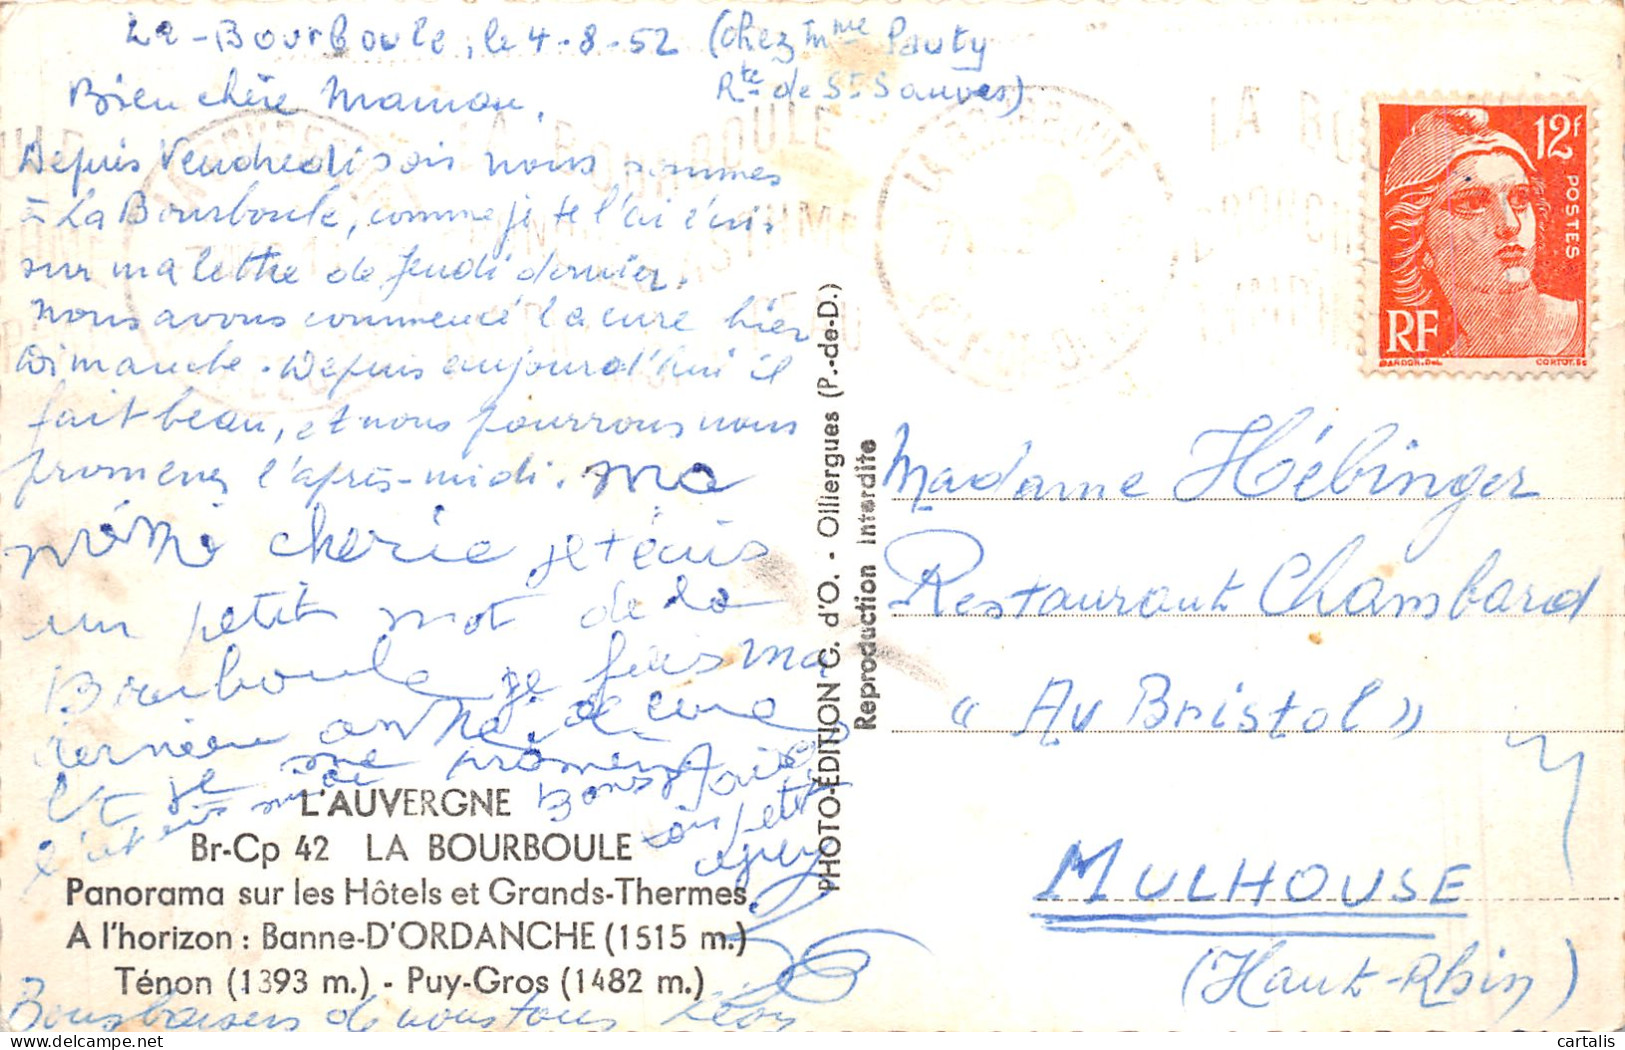 La-Bourboule, le 4-8-52 (chez Mme Pauty
Rte de St Sauves)
Bien chère Maman,
Depuis Vendredi soir nous sommes
à La Bourboule, comme je te l'ai écris
sur ma lettre de Jeudi dernier.
Nous avons commencé la cure hier
Dimanche. Depuis aujourd'hui il
fait beau, et nous pourrons nous
promener l'après-midi. ma
mémé cherie je t'écris
un petit mot de la
Bourboule je fais ma
dernière année de cure
et je me promène
l'après midi Bons
ton petit
Bons baisers de nous tous Léon
L'AUVERGNE
Br-Cp 42 LA BOURBOULE
Panorama sur les Hôtels et Grands-Thermes.
A l'horizon : Banne-D'ORDANCHE (1515 m.)
Ténon (1393 m.) - Puy-Gros (1482 m.)
PHOTO-ÉDITION G. d'O. - Olliergues (P.-de-D.)
Reproduction Interdite
LA BOURBOULE
12f
POSTES
RF
GANDON. DEL
CORTOT. SC
Madame Hébinger
Restaurant Chambard
"Au Bristol"
MULHOUSE
(Haut-Rhin)
cartalis